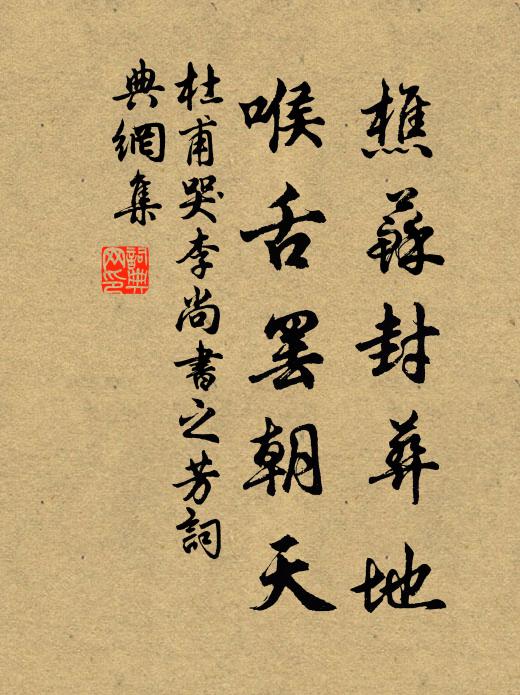 樵蘇封葬地
喉舌罷朝天
杜甫哭李尚書之芳詞
典網集
詞典
网印